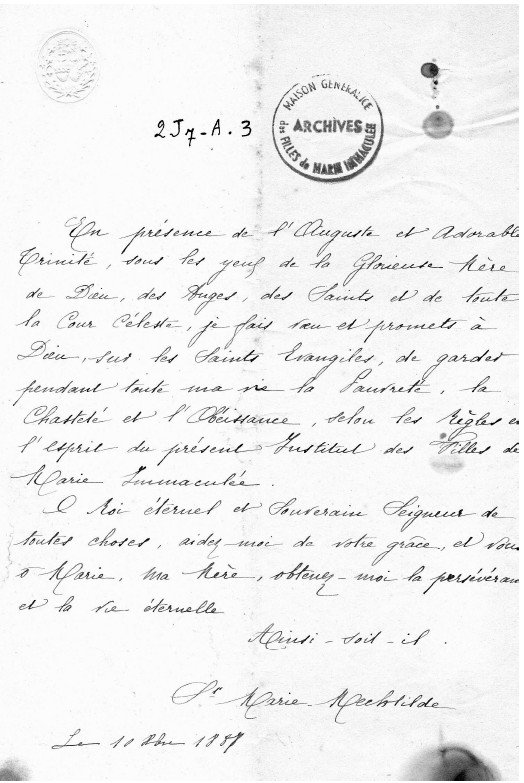 MAISON GÉNÉRALICE
ARCHIVES
des FILLES de MARIE IMMACULÉE
2J7-A.3
En présence de l'Auguste et Adorable
Trinité, sous les yeux de la Glorieuse Mère
de Dieu, des Anges, des Saints et de toute
la Cour Céleste, je fais vœu et promets à
Dieu, sur les Saints Evangiles, de garder
pendant toute ma vie la Pauvreté, la
Chasteté et l'Obéissance, selon les Règles et
l'esprit du présent Institut des Filles de
Marie Immaculée.
O Roi éternel et Souverain Seigneur de
toutes choses, aidez-moi de votre grâce, et vous
ô Marie, ma Mère, obtenez-moi la persévéran
et la vie éternelle
Ainsi-soit-il.
Sr Marie-Mechtilde
Le 10